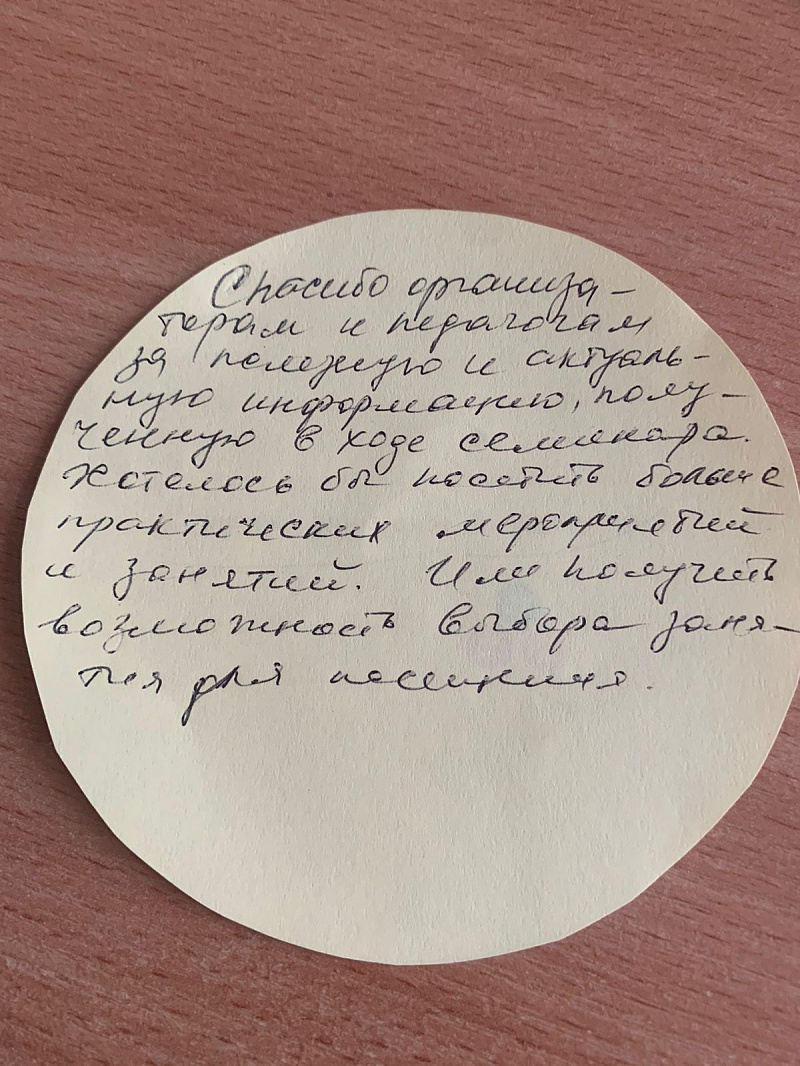 Спасибо организа-
торам и педагогам
за полезную и актуаль-
ную информацию, полу-
ченную в ходе семинара.
Хотелось бы посетить больше
практических мероприятий
и занятий. Или получить
возможность выбора заня-
тия для посещения.